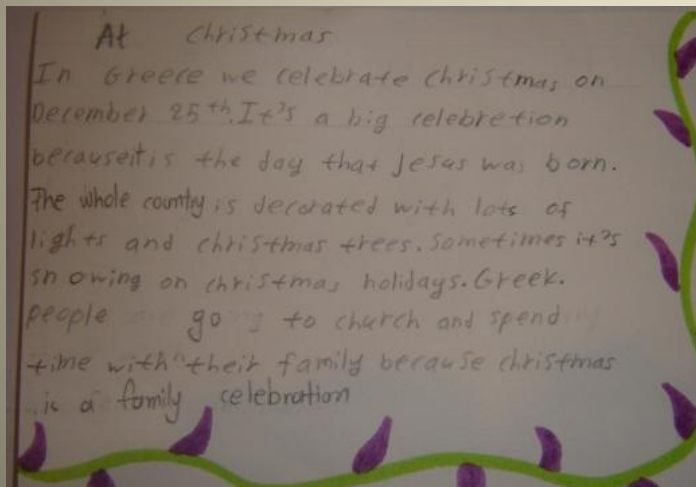 At christmas
In Greece we celebrate christmas on
December 25th. It's a big celebretion
becauseitis the day that Jesus was born.
The whole country is decorated with lots of
lights and christmas trees. Sometimes it's
snowing on christmas holidays. Greek.
people go to church and spend
time with their family because christmas
is a family celebration